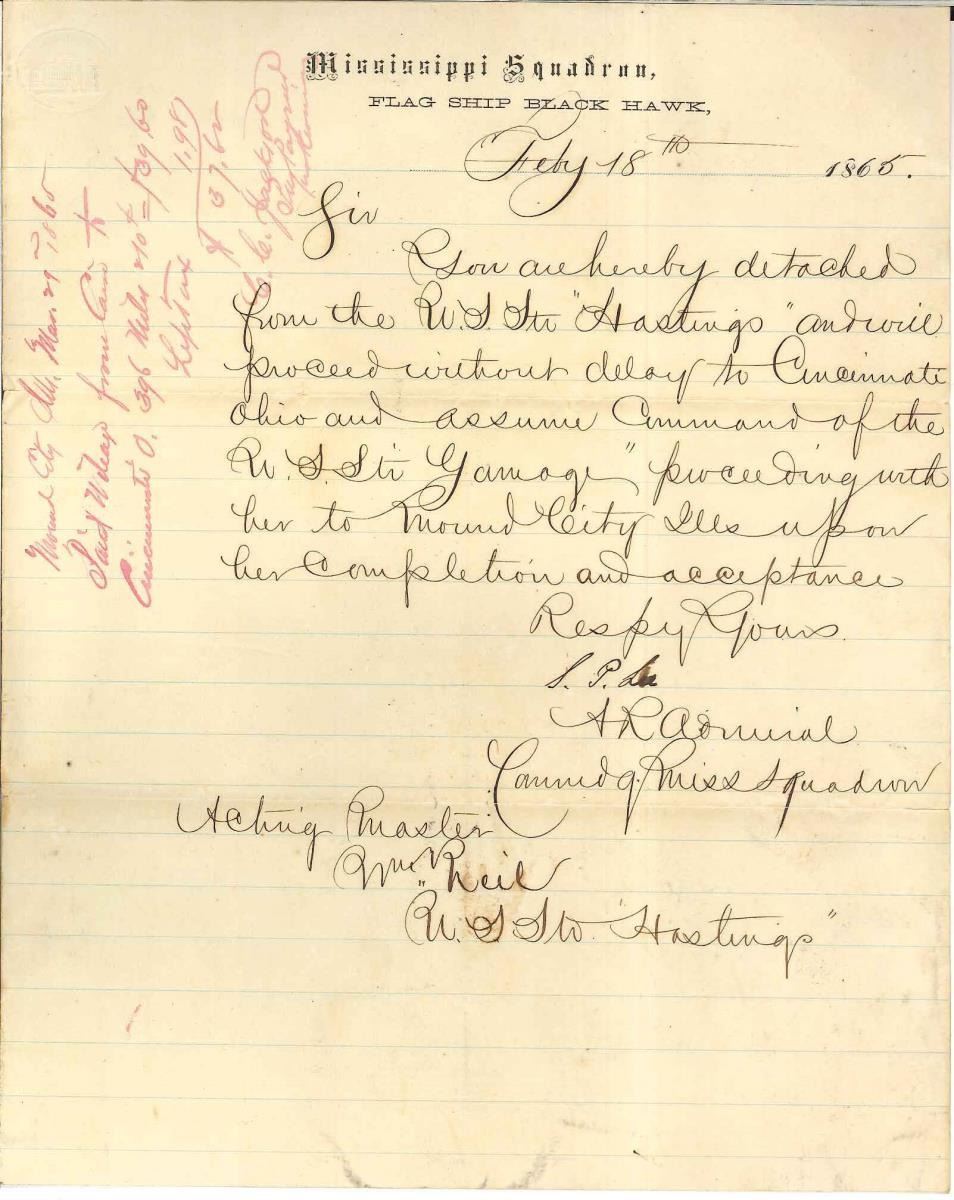 Mississippi Squadron,
FLAG SHIP BLACK HAWK,
Feby 18th 1865.
Sir
You are hereby detached
from the U.S. Str "Hastings" and will
proceed without delay to Cincinnati
Ohio and assume Command of the
U S. Str Gamage" proceeding with
her to Mound City Ills upon
her completion and acceptance
Respy Yours
S. P. Lee
A R Admiral
Commdg. Miss Squadron
Acting Master
Wm Neil
U. S Str. "Hastings"
Mound City Ills. Mar. 29 1865
Paid Mileage from Cairo to
Cincinnati O. 396 Miles 10¢ = $39.60
Less Tax 1.98
$ 37.62
C. C. Jackson
Paymaster